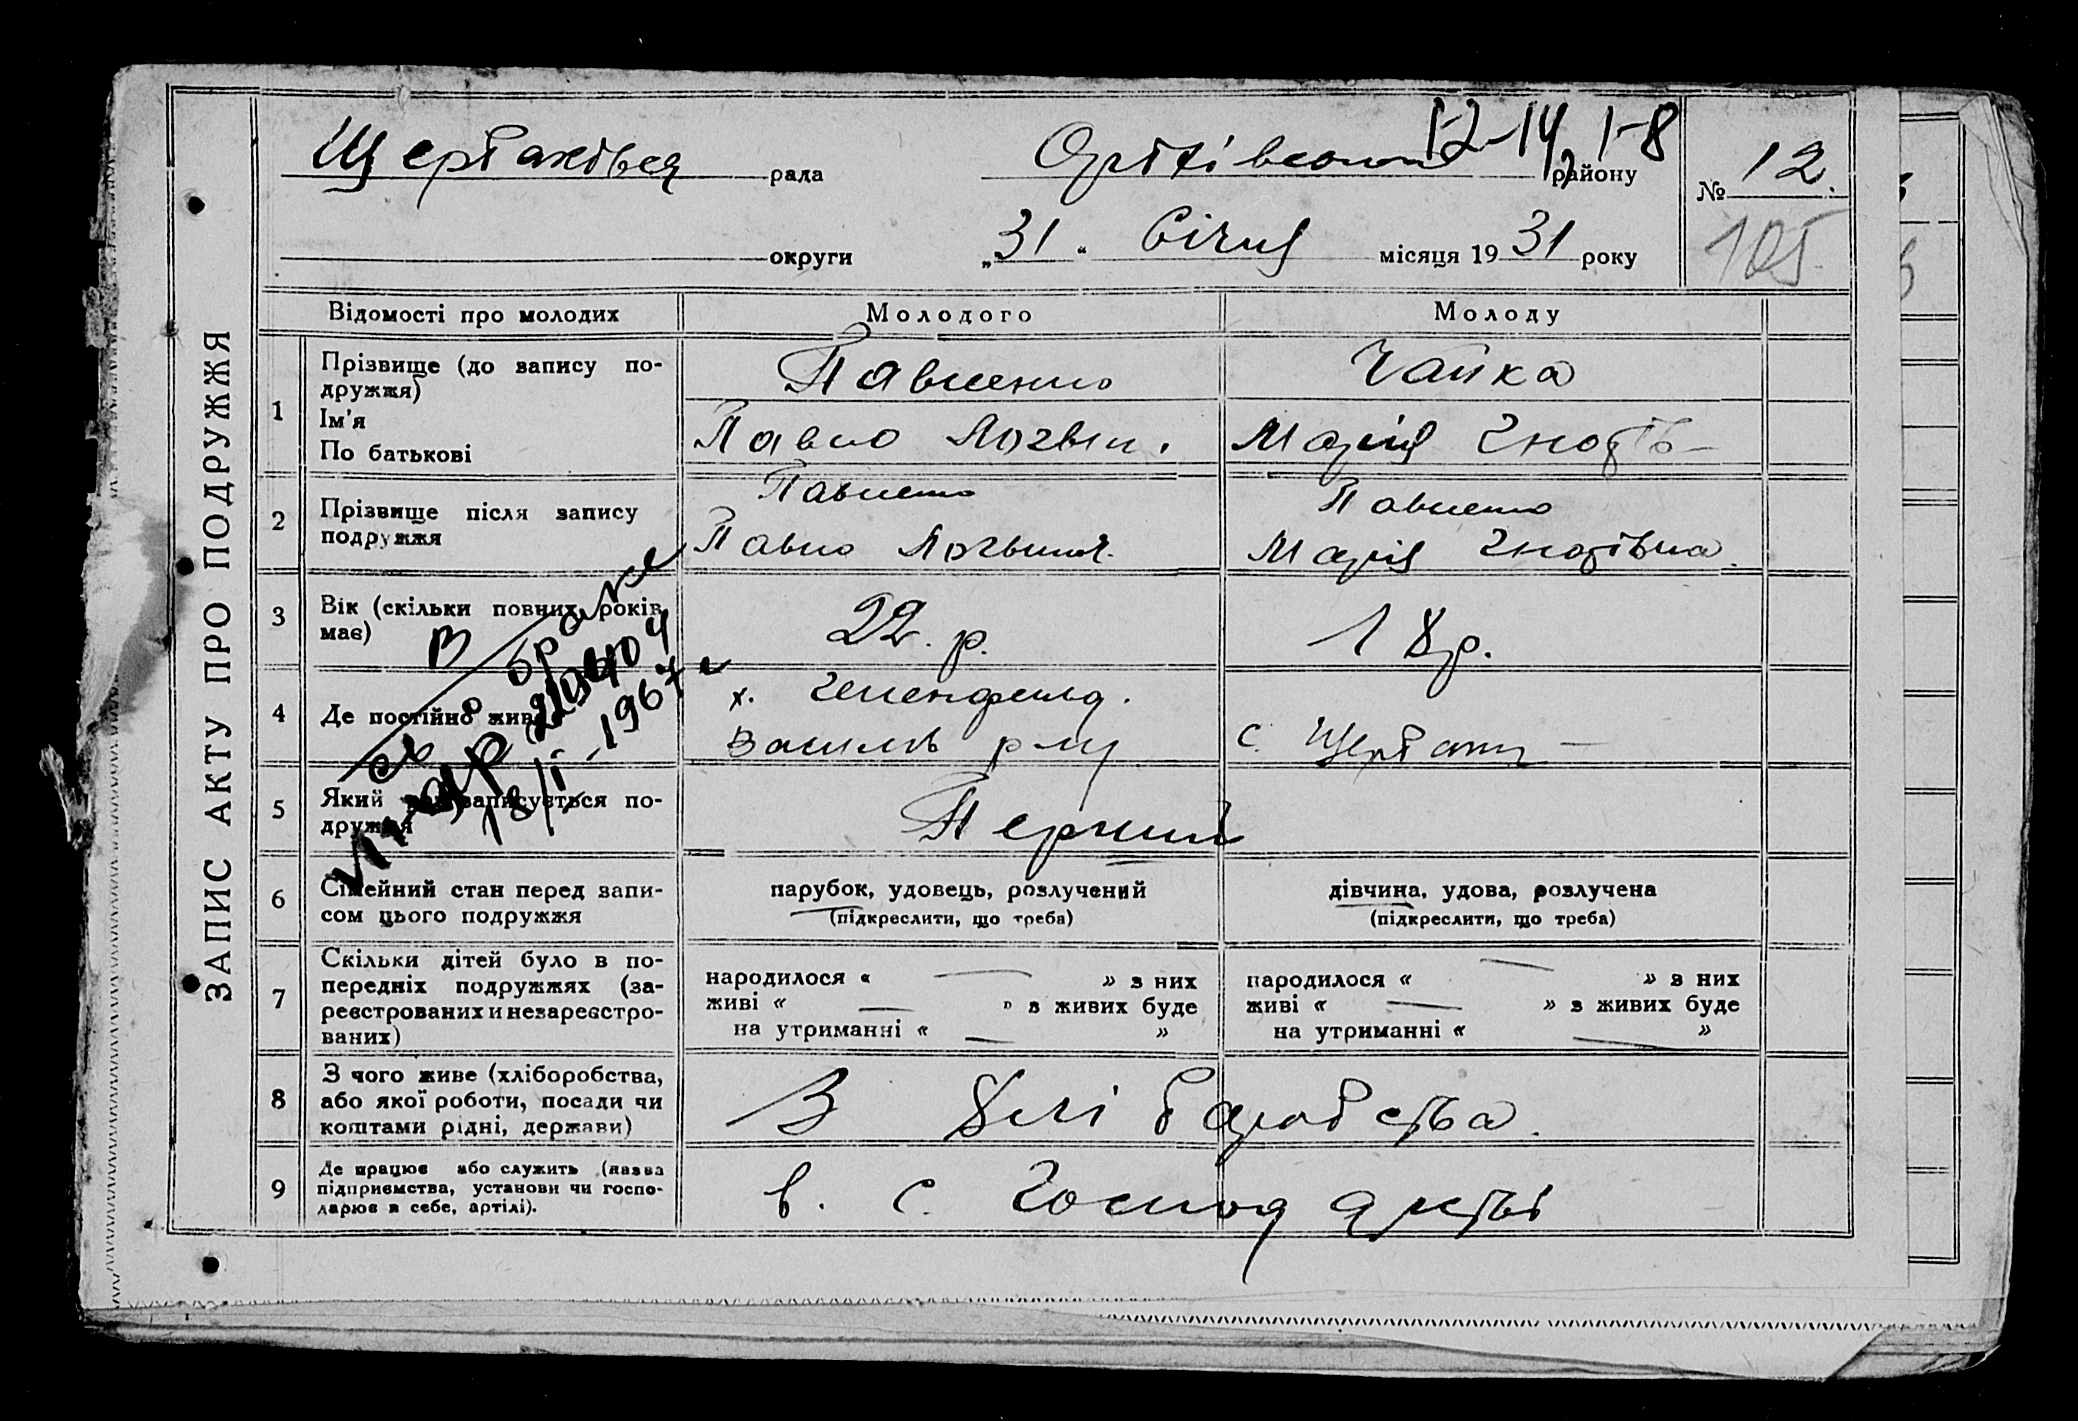 Щербаківська рада Оріхівського району № 12.
1-2-14, 1-8
округи „31“ Січня місяця 1931 року
105
ЗАПИС АКТУ ПРО ПОДРУЖЖЯ
Відомості про молодих Молодого Молоду
1 Прізвище (до запису по-
дружжя) Павленко Чайка
Ім'я
По батькові Павло Логвин. Марія Гнатів-
2 Прізвище після запису
подружжя
Павленко Павленко
Павло Логвинов. Марія Гнатівна
3 Вік (скільки повних років
має) 22 р. 18 р.
4 Де постійно живе
х. Геленфельд.
Василів р-ну с. Щербаки —
5 Який раз записується по-
дружжя Перший
6 Сімейний стан перед запи-
сом цього подружжя
парубок, удовець, розлучений дівчина, удова, розлучена
(підкреслити, що треба) (підкреслити, що треба)
7 Скільки дітей було в по-
передніх подружжях (за-
реєстрованих и незареєстро-
ваних)
народилося « — » з них народилося « — » з них
живі « — » з живих буде живі « — » з живих буде
на утриманні « — » на утриманні « — »
8 З чого живе (хліборобства,
або якої роботи, посади чи
коштами рідні, держави)
З Хлі баробства.
9 Де працює або служить (назва
підприємства, установи чи госпо-
дарює в себе, артілі).
в. с. Господ артві
св о браке
18/II-1967 г